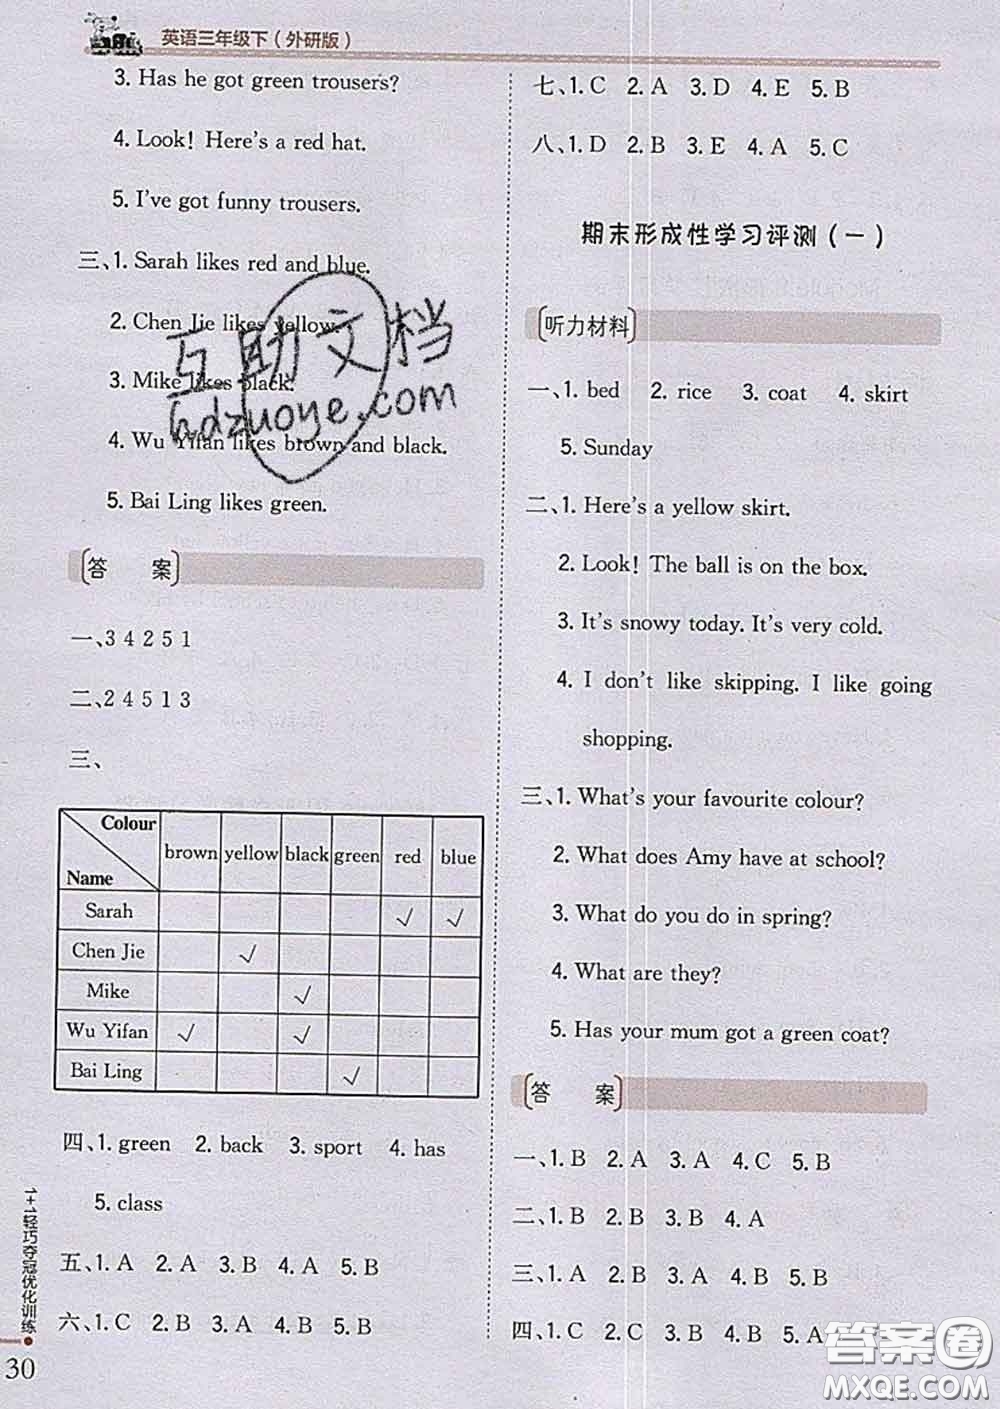 英语三年级下（外研版）
3. Has he got green trousers?
4. Look! Here's a red hat.
5. I've got funny trousers.
三、1. Sarah likes red and blue.
2. Chen Jie likes yellow.
3. Mike likes black.
4. Wu Yifan likes brown and black.
5. Bai Ling likes green.
答 案
一、3 4 2 5 1
二、2 4 5 1 3
三、
Colour
Name
brown yellow black green red blue
Sarah √ √
Chen Jie √
Mike √
Wu Yifan √ √
Bai Ling √
四、1. green 2. back 3. sport 4. has
5. class
五、1. A 2. A 3. B 4. A 5. B
六、1. C 2. B 3. A 4. B 5. B
七、1. C 2. A 3. D 4. E 5. B
八、1. D 2. B 3. E 4. A 5. C
期末形成性学习评测（一）
听力材料
一、1. bed 2. rice 3. coat 4. skirt
5. Sunday
二、1. Here's a yellow skirt.
2. Look! The ball is on the box.
3. It's snowy today. It's very cold.
4. I don't like skipping. I like going
shopping.
三、1. What's your favourite colour?
2. What does Amy have at school?
3. What do you do in spring?
4. What are they?
5. Has your mum got a green coat?
答 案
一、1. B 2. A 3. A 4. C 5. B
二、1. B 2. B 3. B 4. A
三、1. A 2. B 3. A 4. B 5. B
四、1. C 2. C 3. B 4. B 5. A
1+1轻巧夺冠优化训练
30
互助文档
hdzuoye.com
答案圈
MXQE.COM